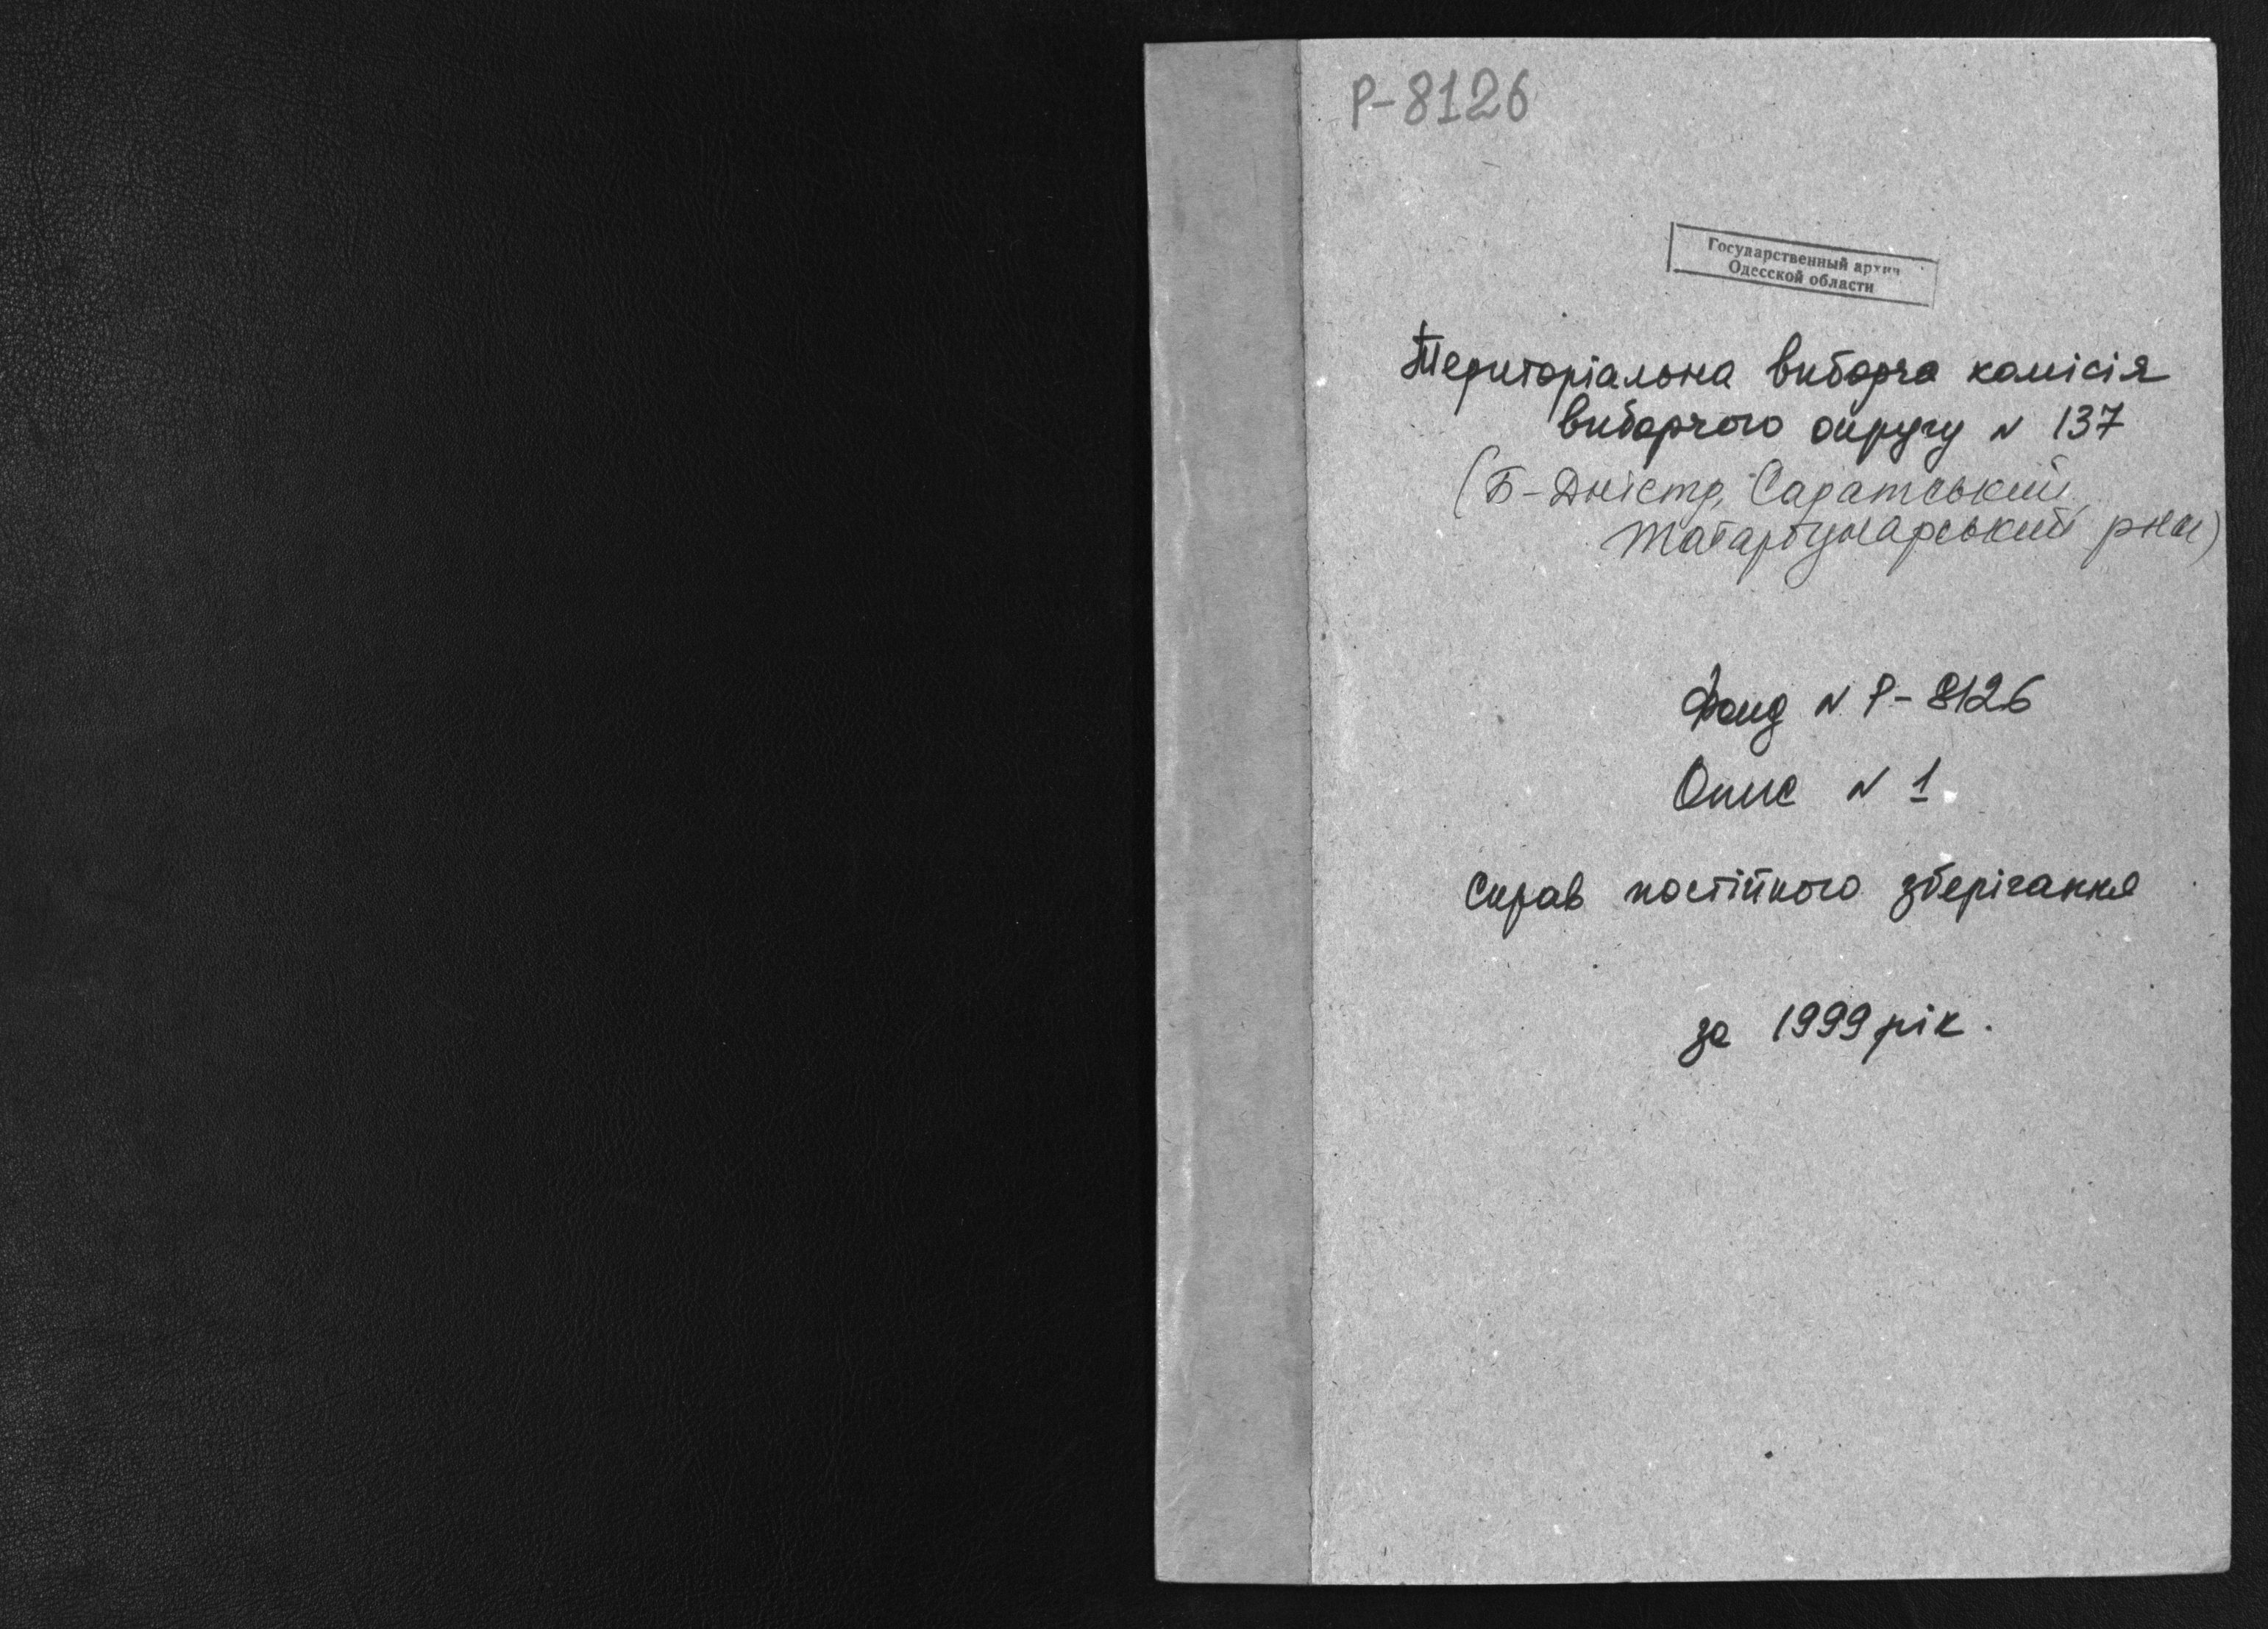 Р-8126
Государственный архив
Одесской области
Територіальна виборча комісія
виборчого округу N 137
(Б-Дністр, Саратський
Татарбунарський р-ни)
Фонд N Р-8126
Опис N 1
Справ постійного зберігання
за 1999 рік.